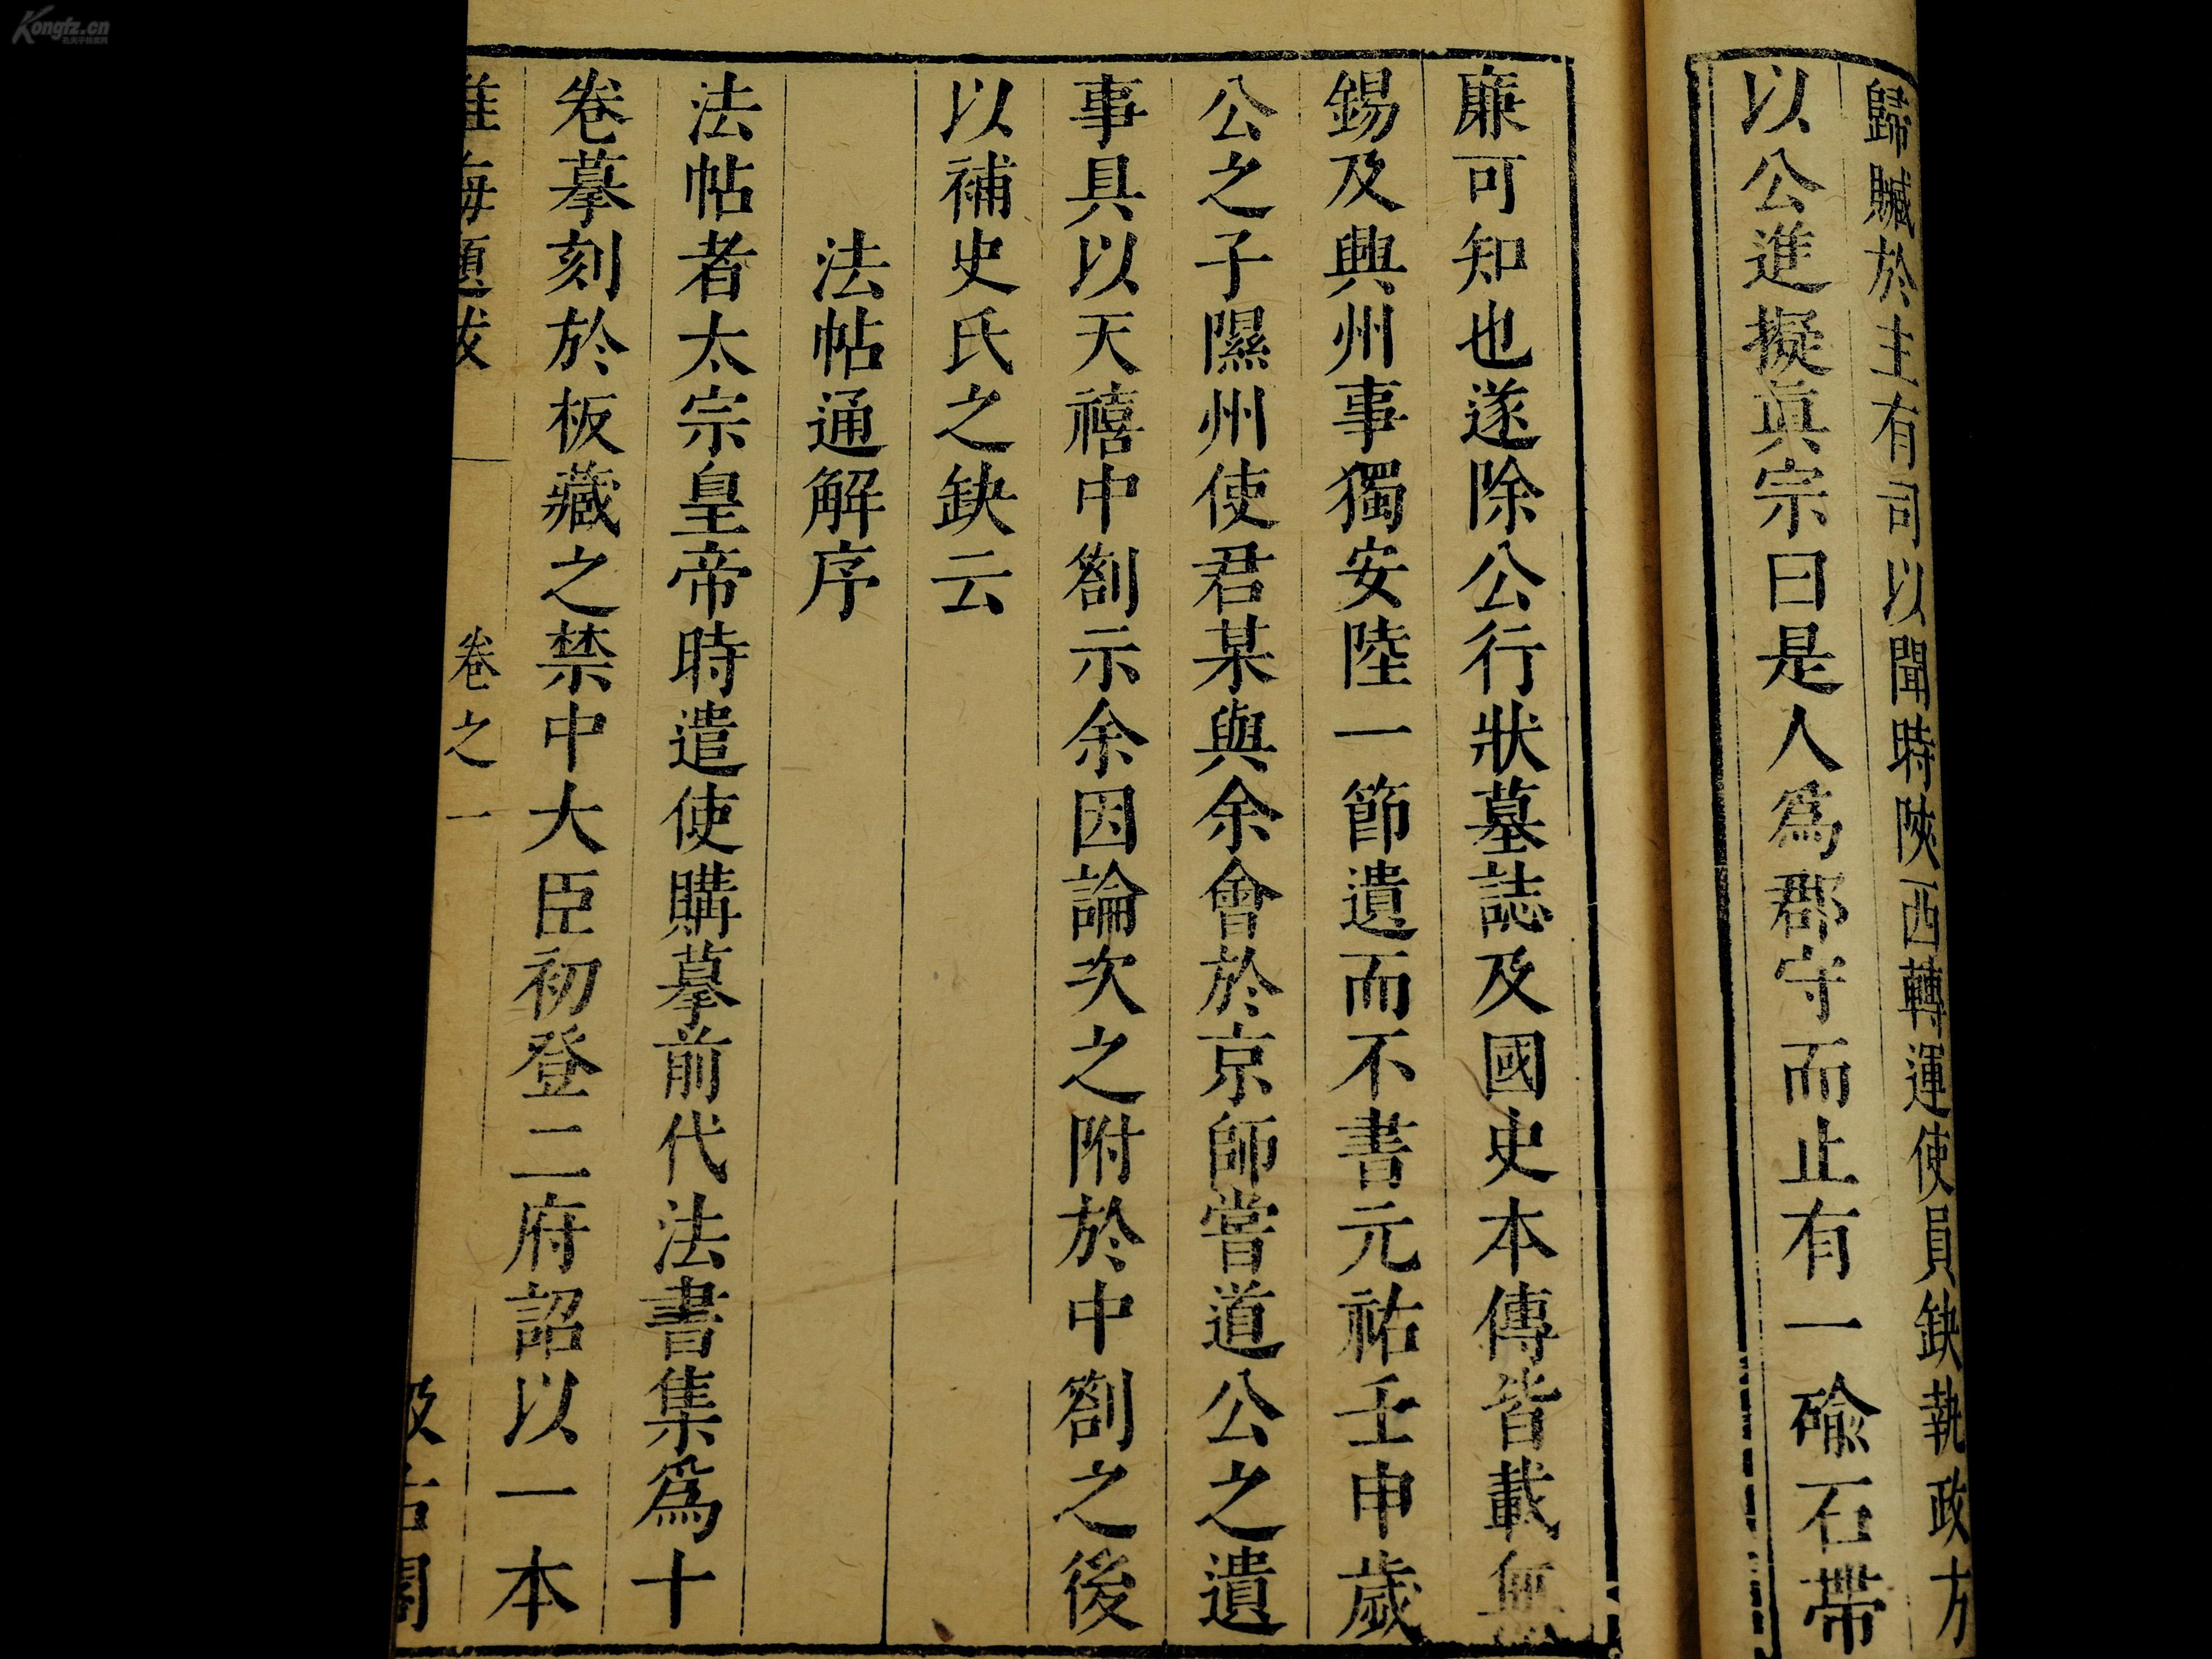 歸贓於主有司以聞時陝西轉運使員缺執政方
以公進擬眞宗曰是人爲郡守而止有一碖石帶
廉可知也遂除公行狀墓誌及國史本傳皆載無
錫及興州事獨安陸一節遺而不書元祐壬申歲
公之子隰州使君某與余會於京師嘗道公之遺
事具以天禧中劄示余因論次之附於中劄之後
以補史氏之缺云
法帖通解序
法帖者太宗皇帝時遣使購摹前代法書集爲十
卷摹刻於板藏之禁中大臣初登二府詔以一本
淮海題跋 卷之一 汲古閣
Kongfz.cn